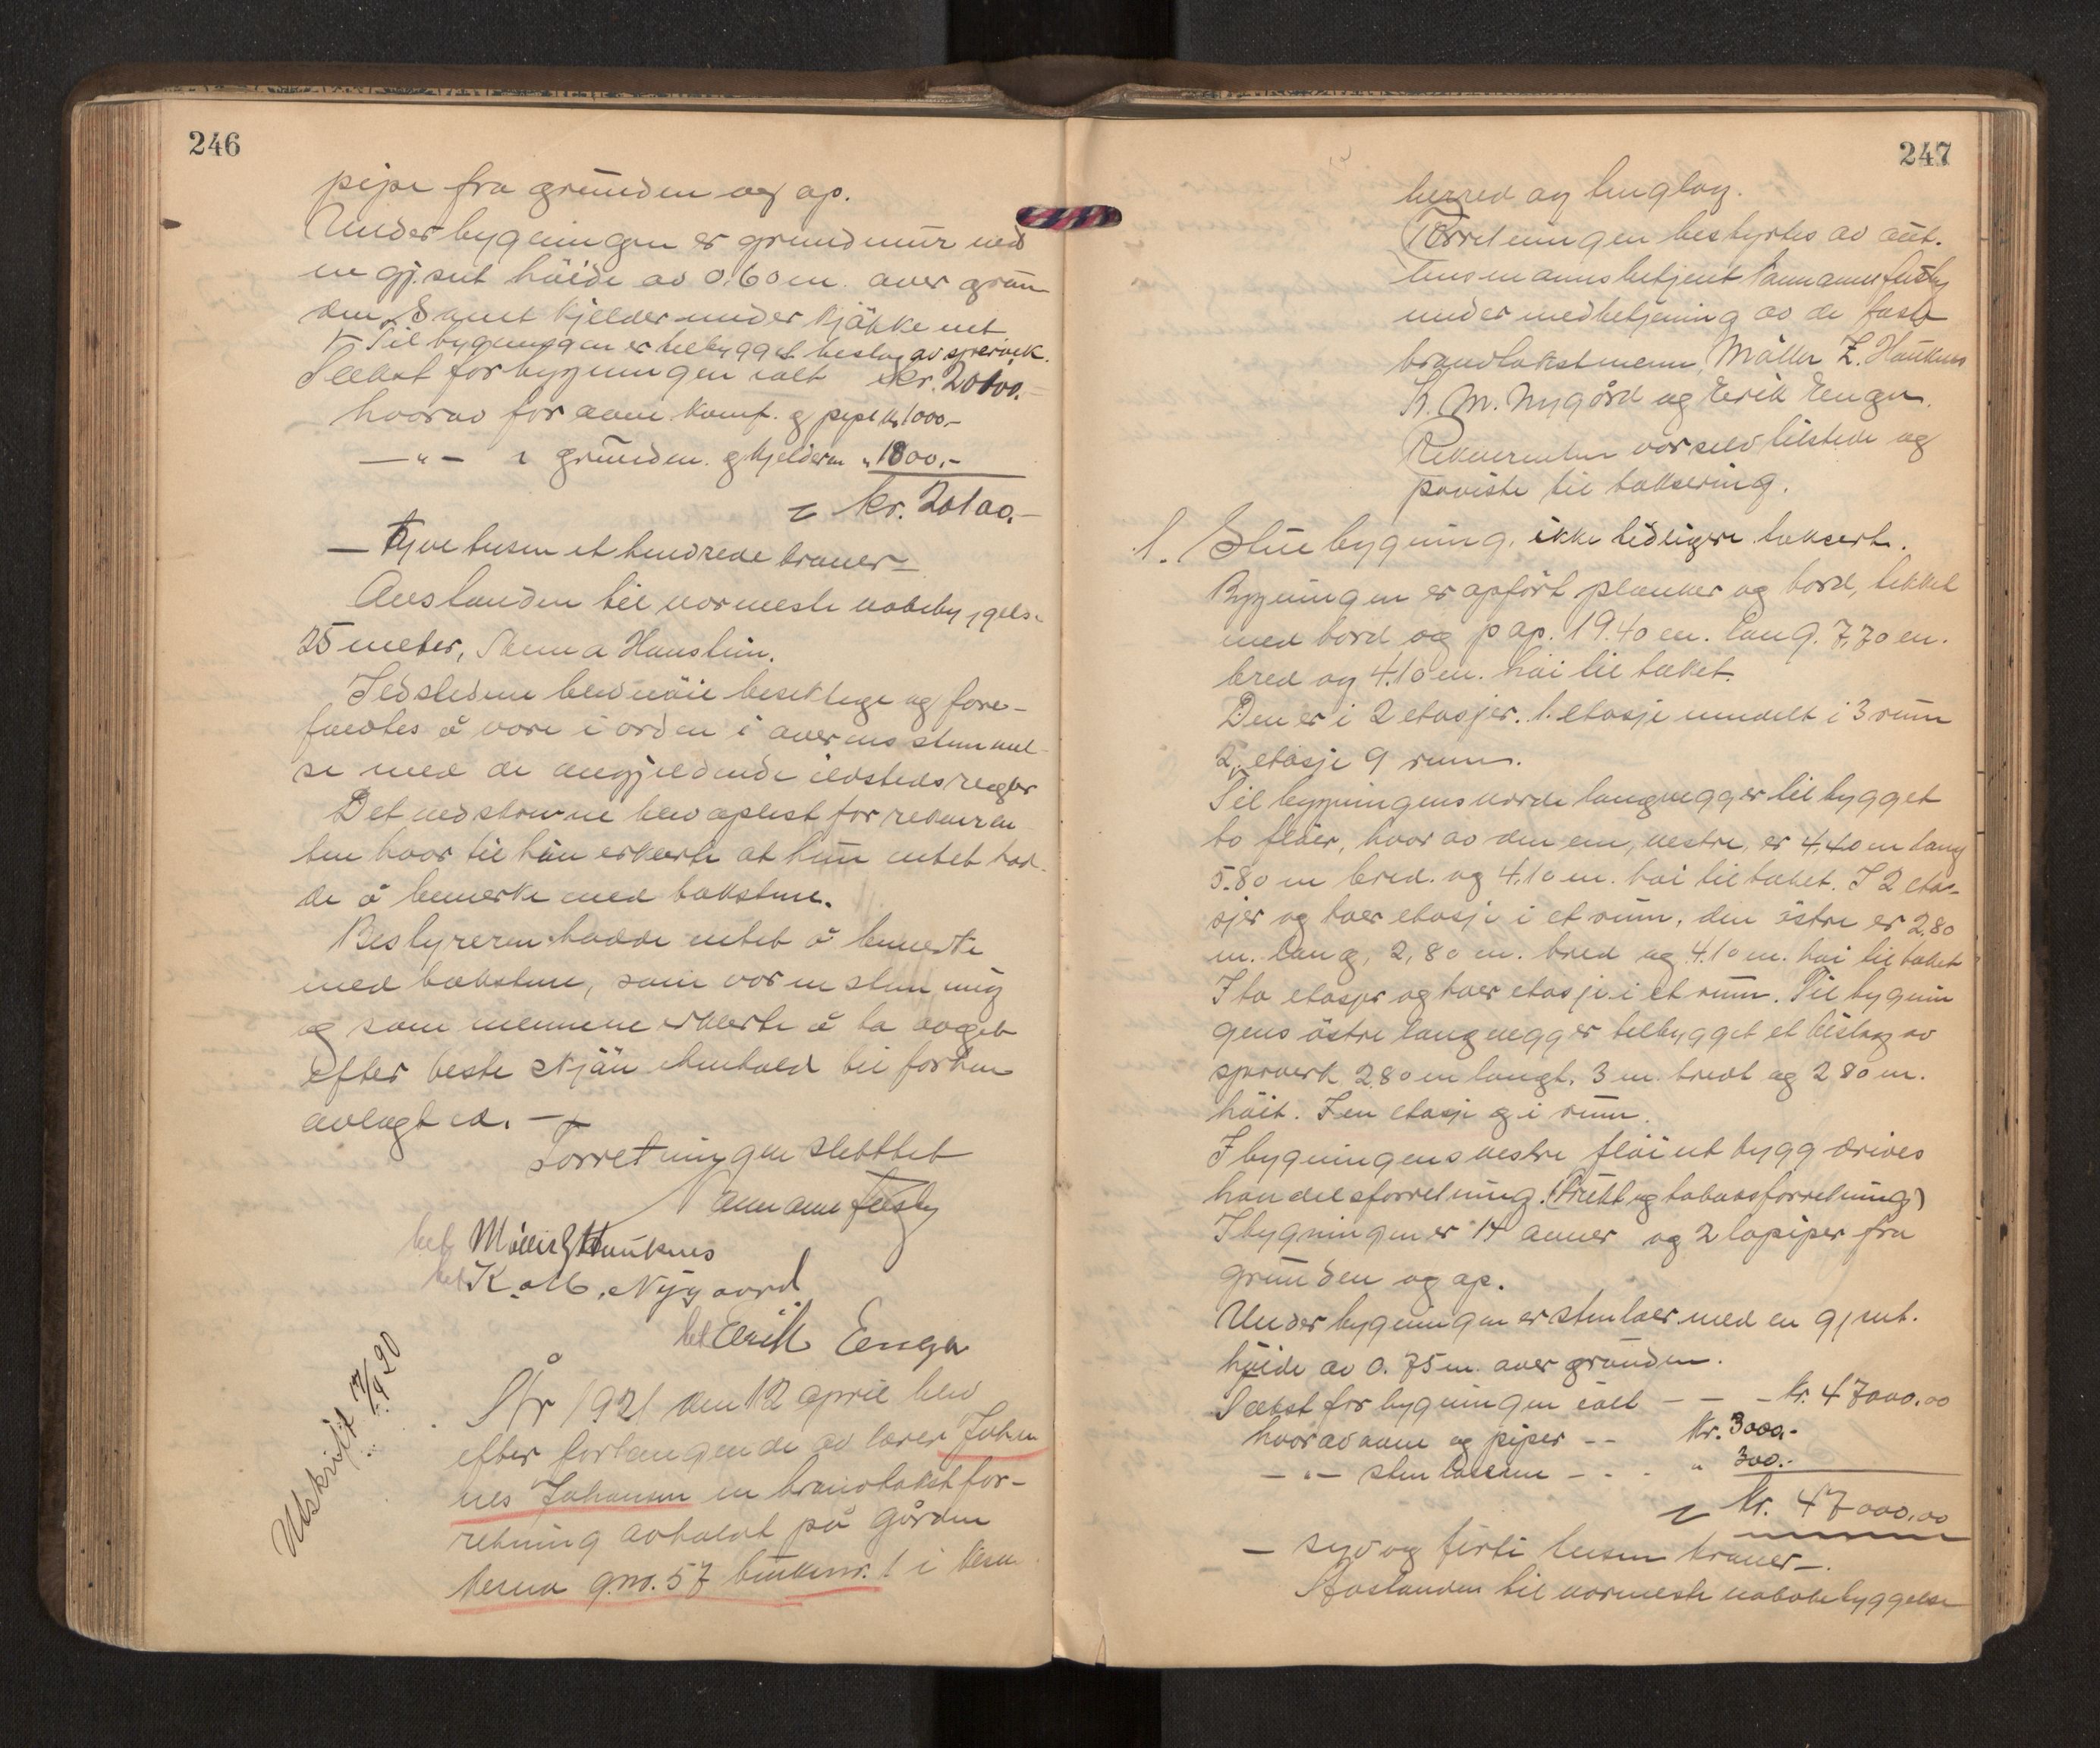 246
pipe fra grunden og op.
Under bygningen er grundmur med
en gj.snt høide av 0.60 m. over grun-
den Samt kjelder under kjøkkenet
Til bygningen er tilbygget beslag av sperverk.
Takst for bygningen ialt kr. 20100.-
hvorav for ovne komf. og pipe kr 1000.-
—"— " grunden og kjelderen " 1800.-
= kr. 20100.-
— Tyve tusen et hundrede kroner —
Avstanden til nærmeste nabobyggels.
25 meter, Hanslim.
Ildstedene blev nøie besiktige og fore-
fandtes å være i orden i overensstemmel-
se med de angjeldende ildstedsregler
Det nedskrevne blev oplest for rekviren
ten hvor til hun erklærte at hun intet had-
de å bemerke med taksten.
Bestyreren hadde intet å bemerke
med taksten, som var enstemmig
og som mennene erklærte å ha avget
efter beste skjøn i henhold til forhen
avlagt ed. —
Forretningen sluttet
Møller Z Hauknes
K. M. Nygaard
Erik Enga
Utskrift 17/4 20
År 1921 den 12 april blev
efter forlangende av lærer Johan
nes Johansen en brandtakstfor-
retning avholdt på gården
gno. 57 bruksnr. 1 i
247
herred og tinglag.
Forretningen bestyrtes av aut.
lensmannsbetjent
under medbetjening av de faste
brandtakstmenn, Møller Z. Hauknes
K. M. Nygård og Erik Enga.
Rekvirenten var selv tilstede og
påviste til taksering.
1. Stuebygning, ikke tidligere taksert.
Bygningen er opført planker og bord, tekket
med bord og pap. 19.40 m. lang. 7,70 m.
bred og 4.10 m. høi til taket.
Den er i 2 etasjer. 1. etasje inndelt i 3 rum
2. etasje 9 rum.
Til bygningens nordre langvegg er tilbygget
to fløier, hvorav den ene, vestre, er 4,40 m lang
5.80 m bred. og 4.10 m. høi til taket. I 2 eta-
sjer og hver etasje i et rum, den østre er 2,80
m. lang, 2,80 m. bred og 4.10 m. høi til taket
I to etasjer og hver etasje i et rum. Til bygnin
gens østre langvegg er tilbygget et bislag av
sperverk 2.80 m langt. 3 m. bredt og 2,80 m.
høit. I en etasje og i rum.
I bygningens vestre fløi utbygg drives
handelsforretning. (Frukt og tobaksforretning)
I bygningen er 14 ovner og 2 løpiper fra
grunden og op.
Under bygningen er stenlaer med en gj snt.
høide av 0.75 m. over grunden.
Takst for bygningen ialt — — - Kr. 47000.00
hvorav ovne og piper -- Kr. 3000.-
- " - sten laerne - - - " 300.-
= Kr. 47000.00
— syv og firti tusen kroner —.
Avstanden til nærmeste nabobebyggelse